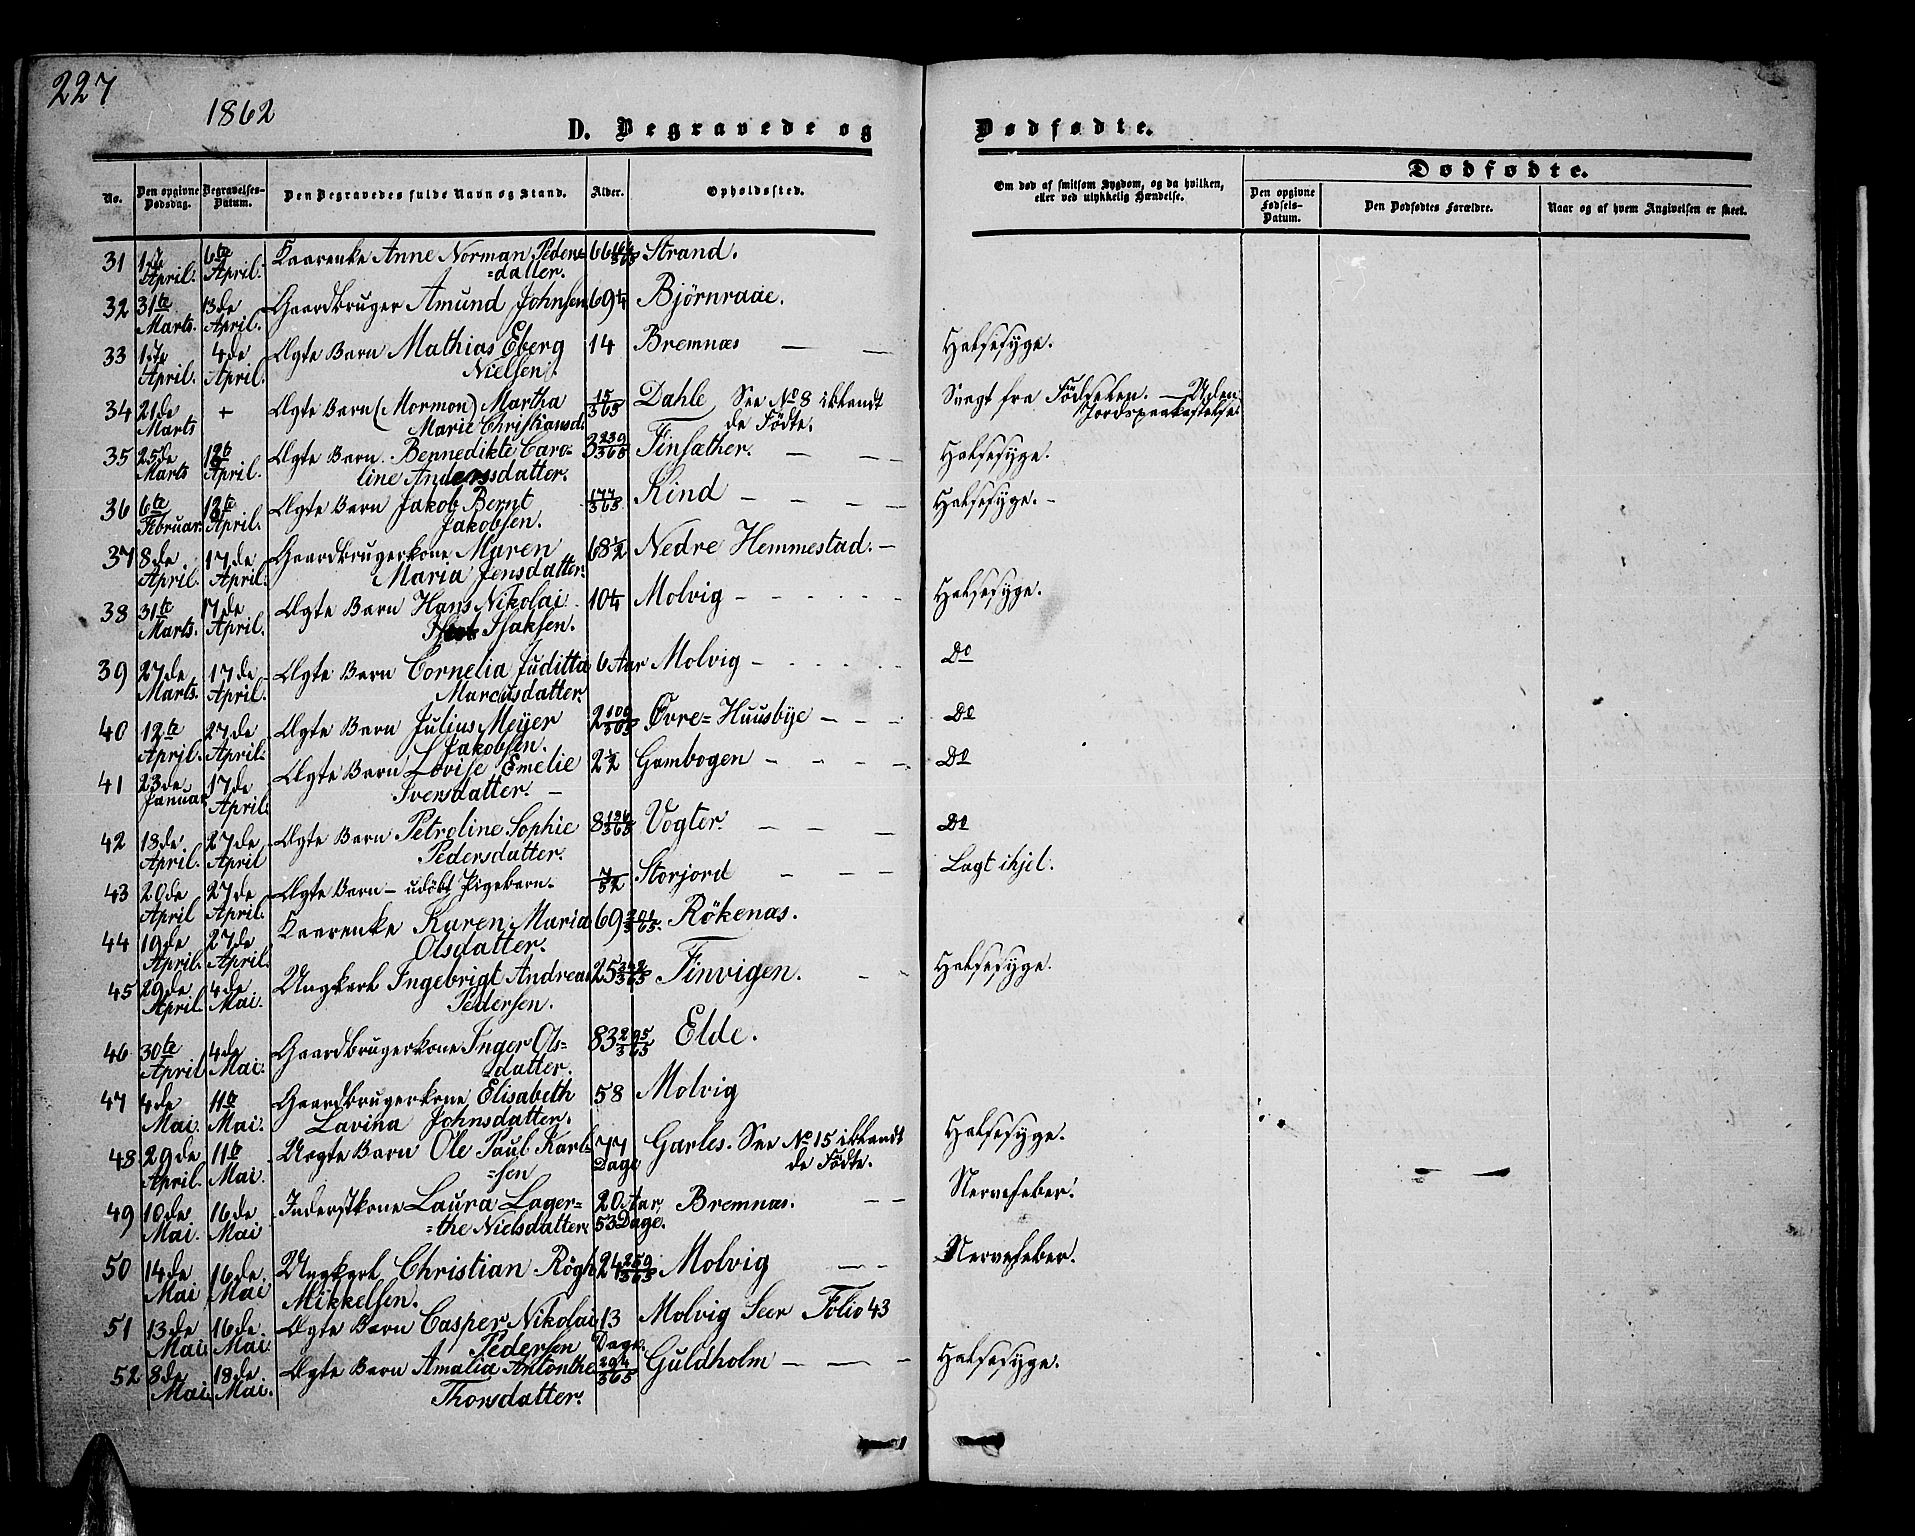 227
1862
D. Begravede og Dødfødte.
Dødfødte.
No. Den opgivne Dødsdag. Begravelses-Datum. Den Begravedes fulde Navn og Stand. Alder. Opholdssted. Om død af smitsom Sygdom, og da hvilken, eller ved ulykkelig Hændelse. Den opgivne Fødsels-Datum. Den Dødfødtes Forældre. Naar og af hvem Angivelsen er skeet.
31 1ste April. 6te April. Kaarenke Anne Norman Peders= 66 Strand.
=datter.
32 31te Marts 13de April. Gaardbruger Amund Johnsen 69 Bjørnraae.
33 1ste April. 4de April. Ægte Barn Mathias Eberg 14 Bremnæs — — Halsesyge.
Nielsen.
34 21de Marts + Ægte Barn (Mormon) Martha 15/365 Dahle See No 8 iblandt Svagt fra Fødselen. — Uden
Marie Christiansd. de Fødte. Jordspaakastelse
35 25de Marts 12te April. Ægte Barn. Bennedikte Caro= 3 239/365 Finsæther. — — Halsesyge.
line Andersdatter.
36 6te Februar. 12te April. Ægte Barn Jakob Bernt 177/365 Kind — — — — Halsesyge. -
Jakobsen.
37 8de April. 17de April. Gaardbrugerkone Maren 68 1/2 Nedre Hemmestad. —
Maria Jensdatter.
38 31te Marts. 17de April. Ægte Barn Hans Nikolai 10 1/4 Molvig - - - - - - Halsesyge.
Isaksen.
39 27de Marts. 17de April. Ægte Barn Cornelia Juditta 6 Aar Molvig - - - - - Do
Marcusdatter.
40 12te April. 27de April. Ægte Barn Julius Meyer 2 100/365 Øvre= Huusbye — - - Do
Jakobsen.
41 23de Januar 17de April. Ægte Barn Lovise Emelie 2 1/2 Gambogen — - - - Do
Svensdatter. —
42 18de April. 27de April Ægte Barn Petroline Sophie 8 Vogter. — — — Do
Pedersdatter.
43 20de April 27de April. Ægte Barn — udøbt Pigebarn. 7/52 Storjord — — — Lagt ihjel.
44 19de April. 27de April. Kaarenke Karen Maria 69 Rökenæs.
Olsdatter.
45 29de April. 4de Mai. Ungkarl Ingebrigt Andreas 25 Finvigen. — - Halsesyge.
Pedersen.
46 30te April 4de Mai. Gaardbrugerkone Inger Ols= 83 295/365 Elde.
=datter.
47 4de Mai. 11te Mai. Gaardbrugerkone Elisabeth 58 Molvig
Lavina Johnsdatter.
48 29de April. 11te Mai. Uægte Barn Ole Paul Karl= 77 Dage Garles. See No 15 iblandt Halsesyge.
=sen de Fødte.
49 10de Mai. 16de Mai Inderstkone Laura Lager= 20 Aar, Bremnæs. — — Nervefeber.
=the Nielsdatter. 53 Dage.
50 14de Mai 16de Mai Ungkarl Christian Rögh 24 259/365 Molvig — — Nervefeber.
Mikkelsen.
51 13de Mai. 16de Mai. Ægte Barn Casper Nikolai 13 Dage. Molvig Seer Folio 43
Pedersen
52 8de Mai. 18de Mai. Ægte Barn Amalia Antonthe 294/365 Guldholm — — — Halsesyge.
Thorsdatter.